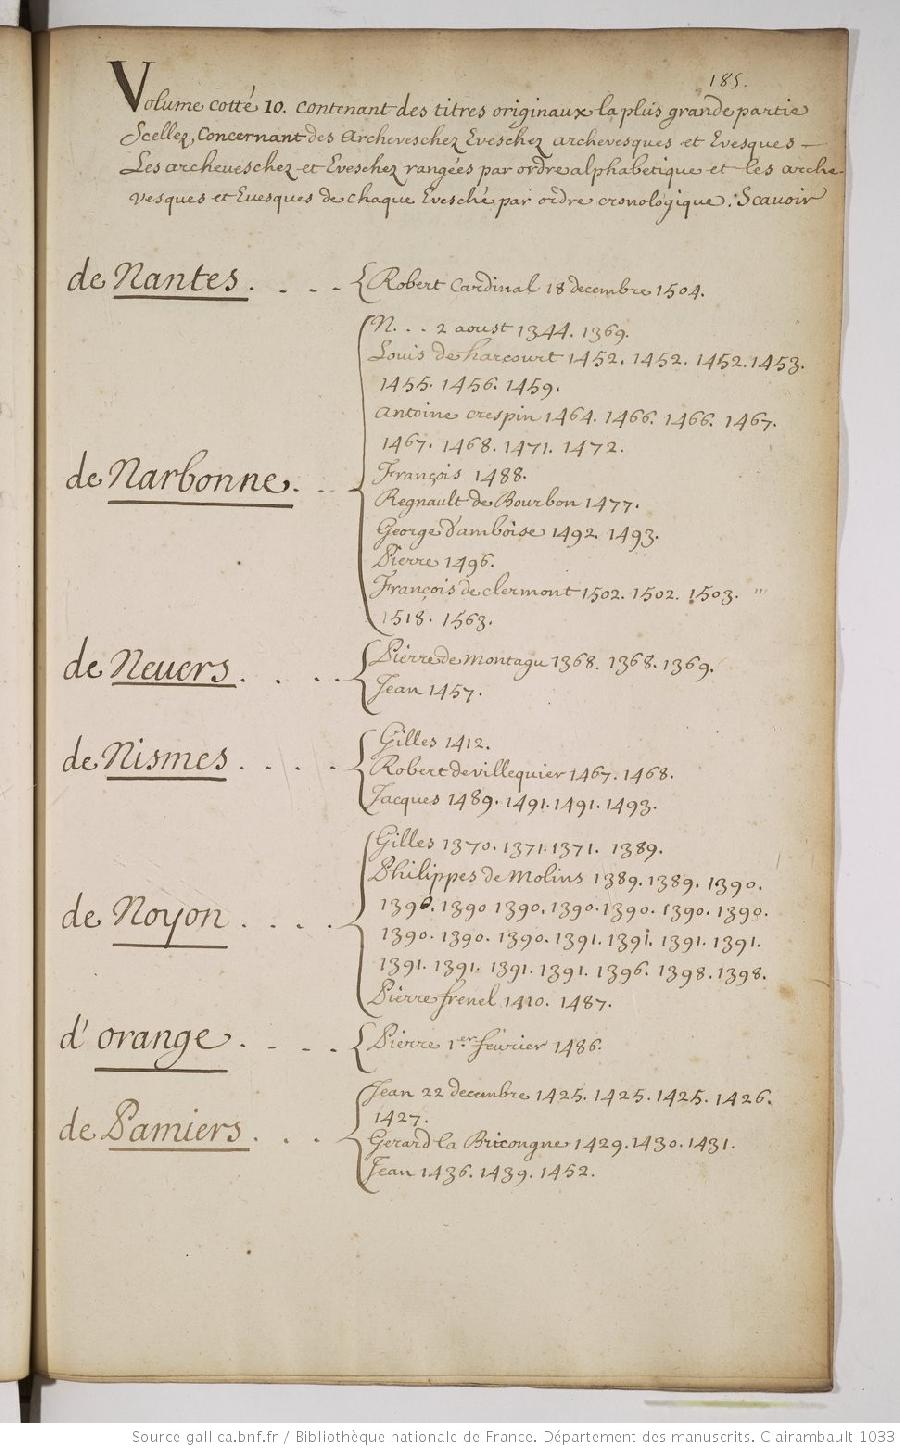 185.
Volume cotté 10. contenant des titres originaux la plus grande partie
Scellez, Concernant des Archeveschez Eveschez archevesques et Evesques —
Les archeveschez et Eveschez rangées par ordre alphabetique et les arche-
vesques et Evesques de chaque Evesché par ordre cronologique. Scavoir
de Nantes. . . . { Robert Cardinal 18 decembre 1504.
N. . . 2 aoust 1344. 1369.
Louis de harcourt 1452. 1452. 1452. 1453.
1455. 1456. 1459.
antoine crespin 1464. 1466. 1466. 1467.
1467. 1468. 1471. 1472.
de Narbonne. . . { François 1488.
Regnault de Bourbon 1477.
George d'amboise 1492. 1493.
Pierre 1496.
François de clermont 1502. 1502. 1503. "
1518. 1563.
de Nevers. . . . { Pierre de montagu 1368. 1368. 1369.
Jean 1457.
Gilles 1412.
de Nismes . . . . { Robert de villequier 1467. 1468.
Jacques 1489. 1491. 1491. 1493.
Gilles 1370. 1371. 1371. 1389.
Philippes de Molins 1389. 1389. 1390.
1390. 1390 1390. 1390. 1390. 1390. 1390.
de Noyon . . . . { 1390. 1390. 1390. 1391. 1391. 1391. 1391.
1391. 1391. 1391. 1391. 1396. 1398. 1398.
Pierre frenel 1410. 1487.
d'orange. . . . { Pierre 1er février 1486.
Jean 22 decembre 1425. 1425. 1425. 1426.
1427.
de Pamiers. . . { Gerard la Bricongne 1429. 1430. 1431.
Jean 1436. 1439. 1452.
Source gallica.bnf.fr / Bibliothèque nationale de France. Département des manuscrits. Clairambault 1033